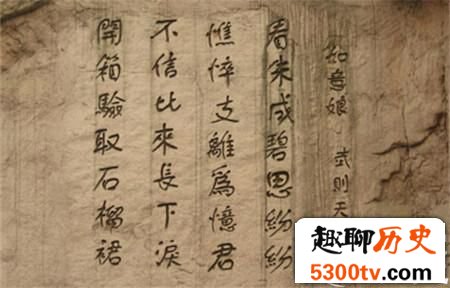 如意娘 武则天
看朱成碧思紛紛
憔悴支離為憶君
不信比來長下淚
開箱驗取石榴裙
趣聊历史
5300tv.com